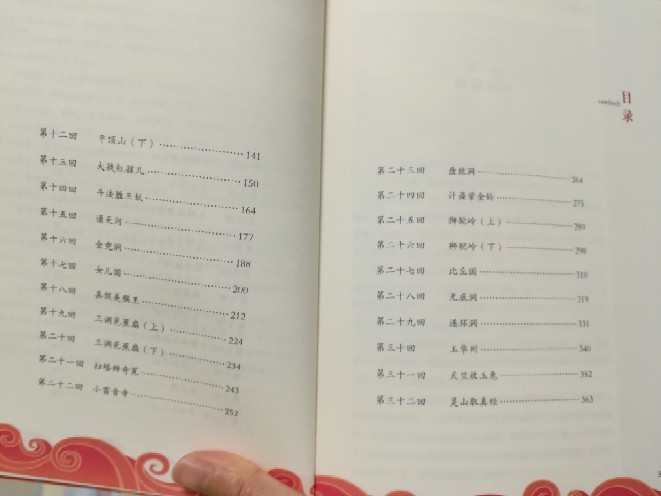 第十二回 平顶山（下）……141
第十三回 大战红孩儿……150
第十四回 斗法胜三妖……164
第十五回 通天河……177
第十六回 金兜洞……188
第十七回 女儿国……200
第十八回 真假美猴王……212
第十九回 三调芭蕉扇（上）……224
第二十回 三调芭蕉扇（下）……234
第二十一回 扫塔辨奇冤……243
第二十二回 小雷音寺……252
目录
第二十三回 盘丝洞……264
第二十四回 计盗紫金铃……275
第二十五回 狮驼岭（上）……289
第二十六回 狮驼岭（下）……298
第二十七回 比丘国……310
第二十八回 无底洞……319
第二十九回 连环洞……331
第三十回 玉华州……340
第三十一回 天竺收玉兔……352
第三十二回 灵山取真经……363